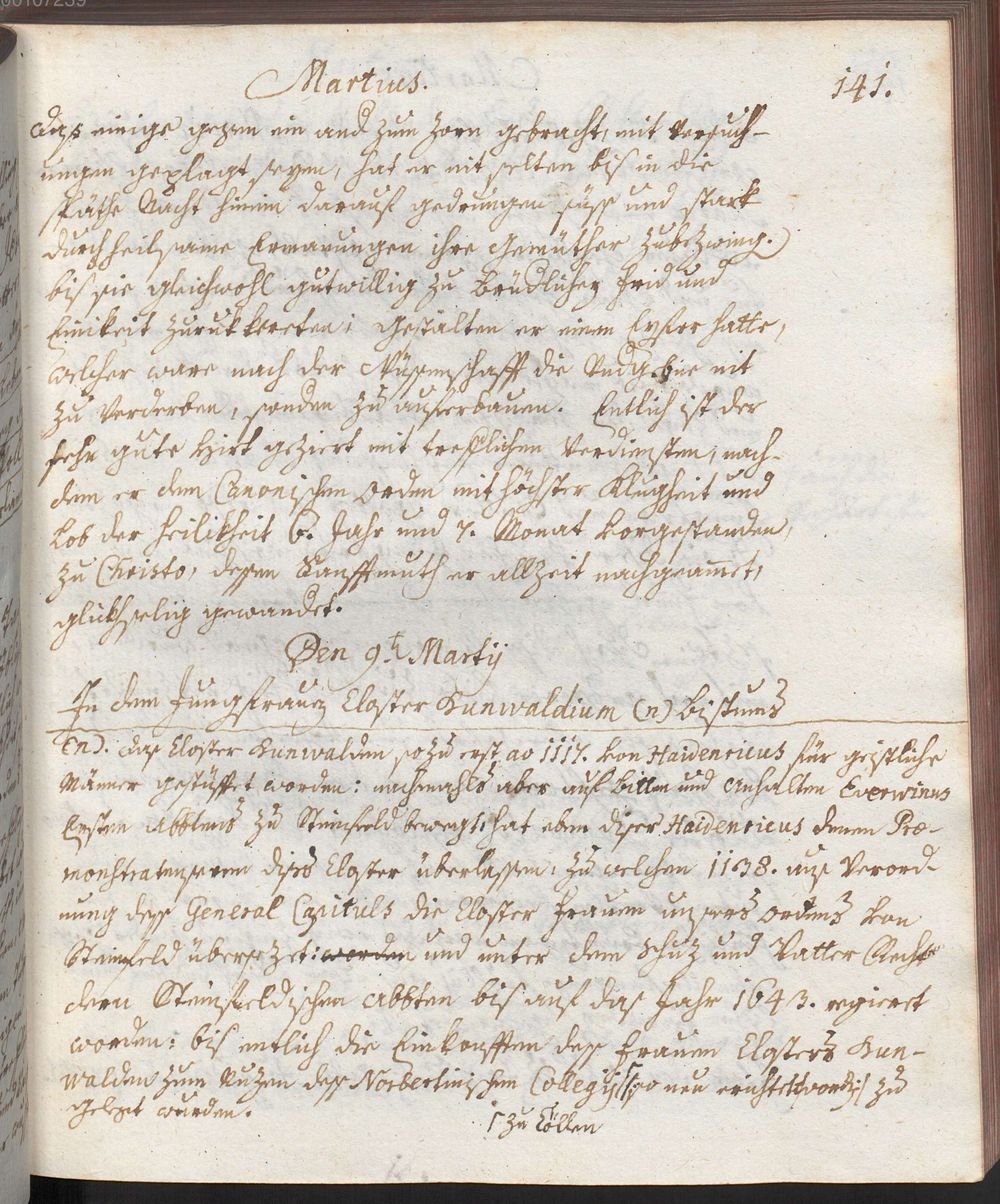 00107239
Martius. 141.
daß einige gegen ein and zum Zorn gebracht, mit Versuch-
ungen geplagt seyen, hat er nit selten bis in die
späthe Nacht hinein darauf gedrungen süss und stark
durch heilsame Ermanungen ihre Gemüther zubezwing.)
bis sie gleichwohl gutwillig zu Brüdlicher Frid und
Einikeit zurukkereten: Gestalten er einen Eyfer hatte,
welcher ware nach der Wüssenschafft die Undgebne nit
zu Verderben, sonden zu auferbauen. Entlich ist der
sehr gute Hirt geziert mit trefflichen Verdiensten, nach-
dem er dem Canonischen Orden mit höchster Klugheit und
Lob der Heilikheit 6. Jahr und 7. Monat vorgestanden,
zu Christo, dessen Sanfftmuth er allzeit nachgeamet,
glükhselig gewandet.
Den 9t Martij
In dem Jungfrauen Closter Kunwaldium (n) Bistums
(n). das Closter Kunwalden so zu erst ao 1117. von Haidenricus für geistliche
Männer gestüfftet worden: nachmahls aber auf bitten und Anhalten Everwinus
Ersten Abbtens zu Steinfeld bewegt, hat eben diser Haidenricus denen Præ-
monstratenseren dises Closter überlassen: zu welchen 1138. aus Verord-
nung dess General Capituls die Closter Frauen unsers Ordens von
Steinfeld übersezet: worden und unter dem Schuz und Vatter Recht
deren Steinfeldischen Abbten bis auf das Jahr 1643. regieret
worden: bis entlich die Einkonfften dess Frauen Closters Kun-
walden zum Nuzen dess Norbertinischen Collegij so neu erichtet worden zu
gelegt wurden.
zu Cöllen